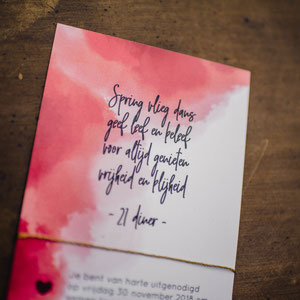 Spring vlieg dans
geef leef en beleef
voor altijd genieten
vrijheid en blijheid
- 21 diner -
bent van harte uitgenodigd
op vrijdag 30 november 2018